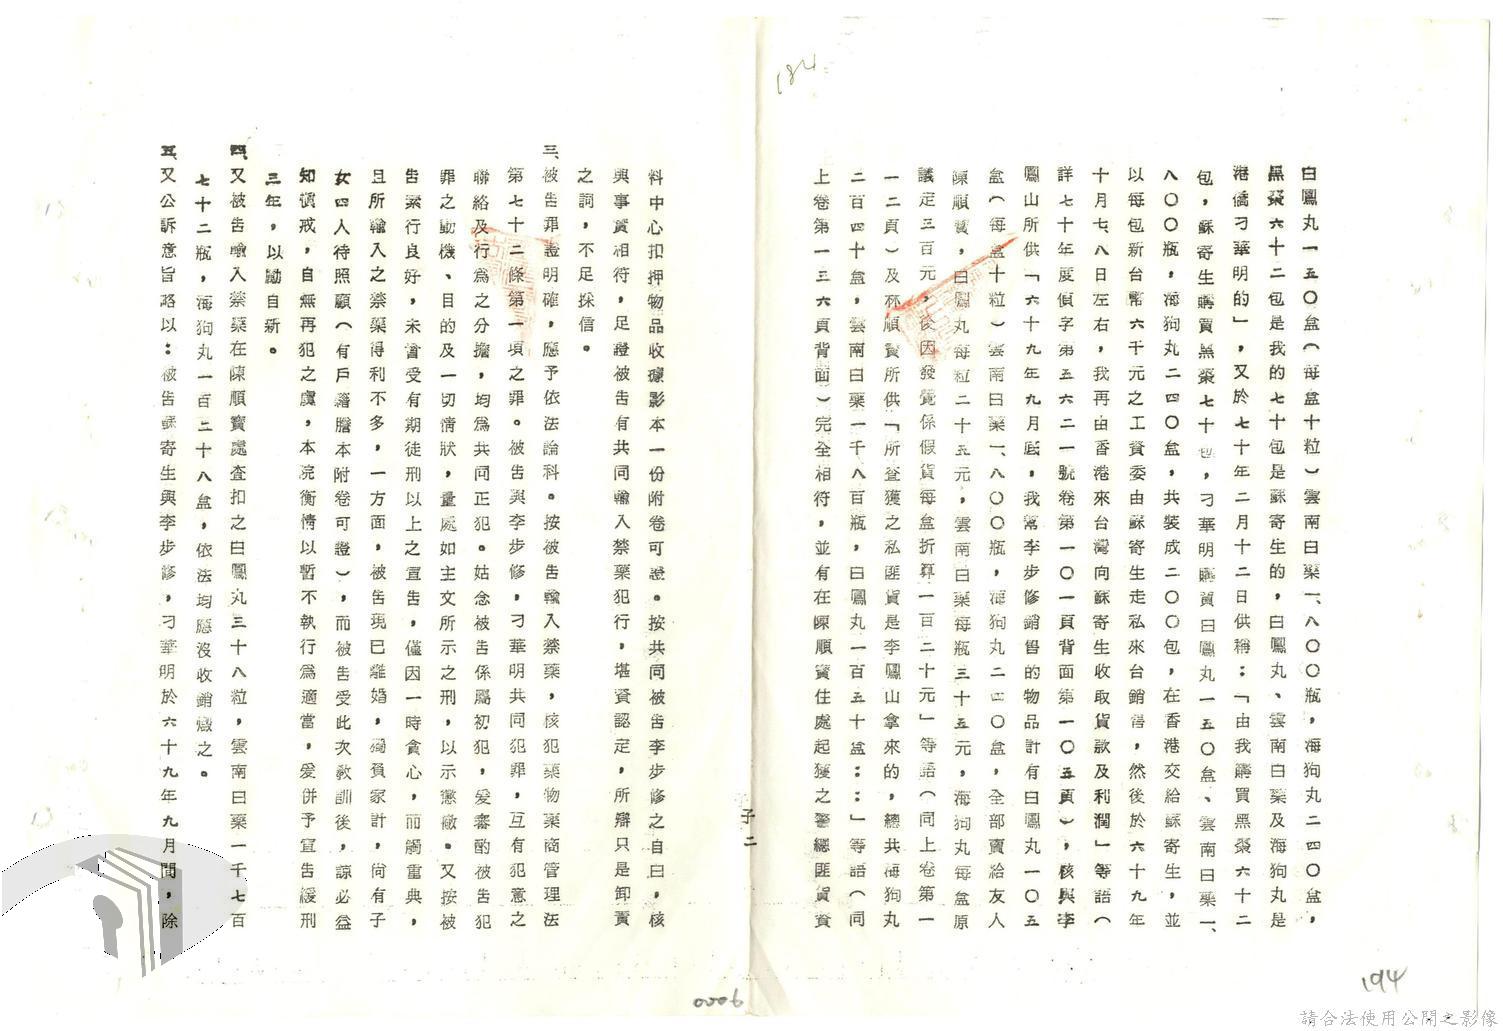 184
白鳳丸一五〇盒（每盒十粒）雲南白藥一、八〇〇瓶，海狗丸二四〇盒，
黑棗六十二包是我的七十包是蘇寄生的，白鳳丸、雲南白藥及海狗丸是
港僑刁華明的」，又於七十年二月十二日供稱：「由我購買黑棗六十二
包，蘇寄生購買黑棗七十包，刁華明購買白鳳丸一五〇盒、雲南白藥一、
八〇〇瓶，海狗丸二四〇盒，共裝成二〇〇包，在香港交給蘇寄生，並
以每包新台幣六千元之工資委由蘇寄生走私來台銷售，然後於六十九年
十月七、八日左右，我再由香港來台灣向蘇寄生收取貨款及利潤」等語（
詳七十年度偵字第五六二一號卷第一〇一頁背面第一〇五頁），核與李
鳳山所供「六十九年九月底，我幫李步修銷售的物品計有白鳳丸一〇五
盒（每盒十粒）雲南白藥一、八〇〇瓶，海狗丸二四〇盒，全部賣給友人
陳順寶，白鳳丸每粒二十五元，雲南白藥每瓶三十五元，海狗丸每盒原
議定三百元，後因發覺係假貨每盒折算一百二十元」等語（同上卷第一
一二頁）及林順寶所供「所查獲之私匪貨是李鳳山拿來的，總共海狗丸
二百四十盒，雲南白藥一千八百瓶，白鳳丸一百五十盒：：」等語（同
上卷第一三六頁背面）完全相符，並有在陳順寶住處起獲之警總匪貨資
子二
料中心扣押物品收據影本一份附卷可證。按共同被告李步修之自白，核
與事實相符，足證被告有共同輸入禁藥犯行，堪資認定，所辯只是卸責
之詞，不足採信。
三、被告罪證明確，應予依法論科。按被告輸入禁藥，核犯藥物藥商管理法
第七十二條第一項之罪。被告與李步修，刁華明共同犯罪，互有犯意之
聯絡及行為之分擔，均為共同正犯。姑念被告係屬初犯，爰審酌被告犯
罪之動機、目的及一切情狀，量處如主文所示之刑，以示懲儆。又按被
告素行良好，未曾受有期徒刑以上之宣告，僅因一時貪心，而觸重典，
且所輸入之禁藥得利不多，一方面，被告現已離婚，獨負家計，尚有子
女四人待照顧（有戶籍謄本附卷可證），而被告受此次教訓後，諒必益
知慎戒，自無再犯之虞，本院衡情以暫不執行為適當，爰併予宣告緩刑
三年，以勵自新。
四、又被告輸入禁藥在陳順寶處查扣之白鳳丸三十八粒，雲南白藥一千七百
七十二瓶，海狗丸一百二十八盒，依法均應沒收銷燬之。
五、又公訴意旨略以：被告蘇寄生與李步修，刁華明於六十九年九月間，除
0006
194
請合法使用公開之影像